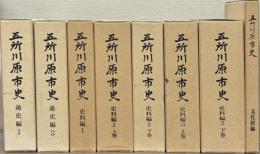 五所川原市史 通史編 1
五所川原市史 通史編 2
五所川原市史 史料編 1
五所川原市史 史料編 2 上巻
五所川原市史 史料編 2 下巻
五所川原市史 史料編 3 上巻
五所川原市史 史料編 3 下巻
五所川原市史